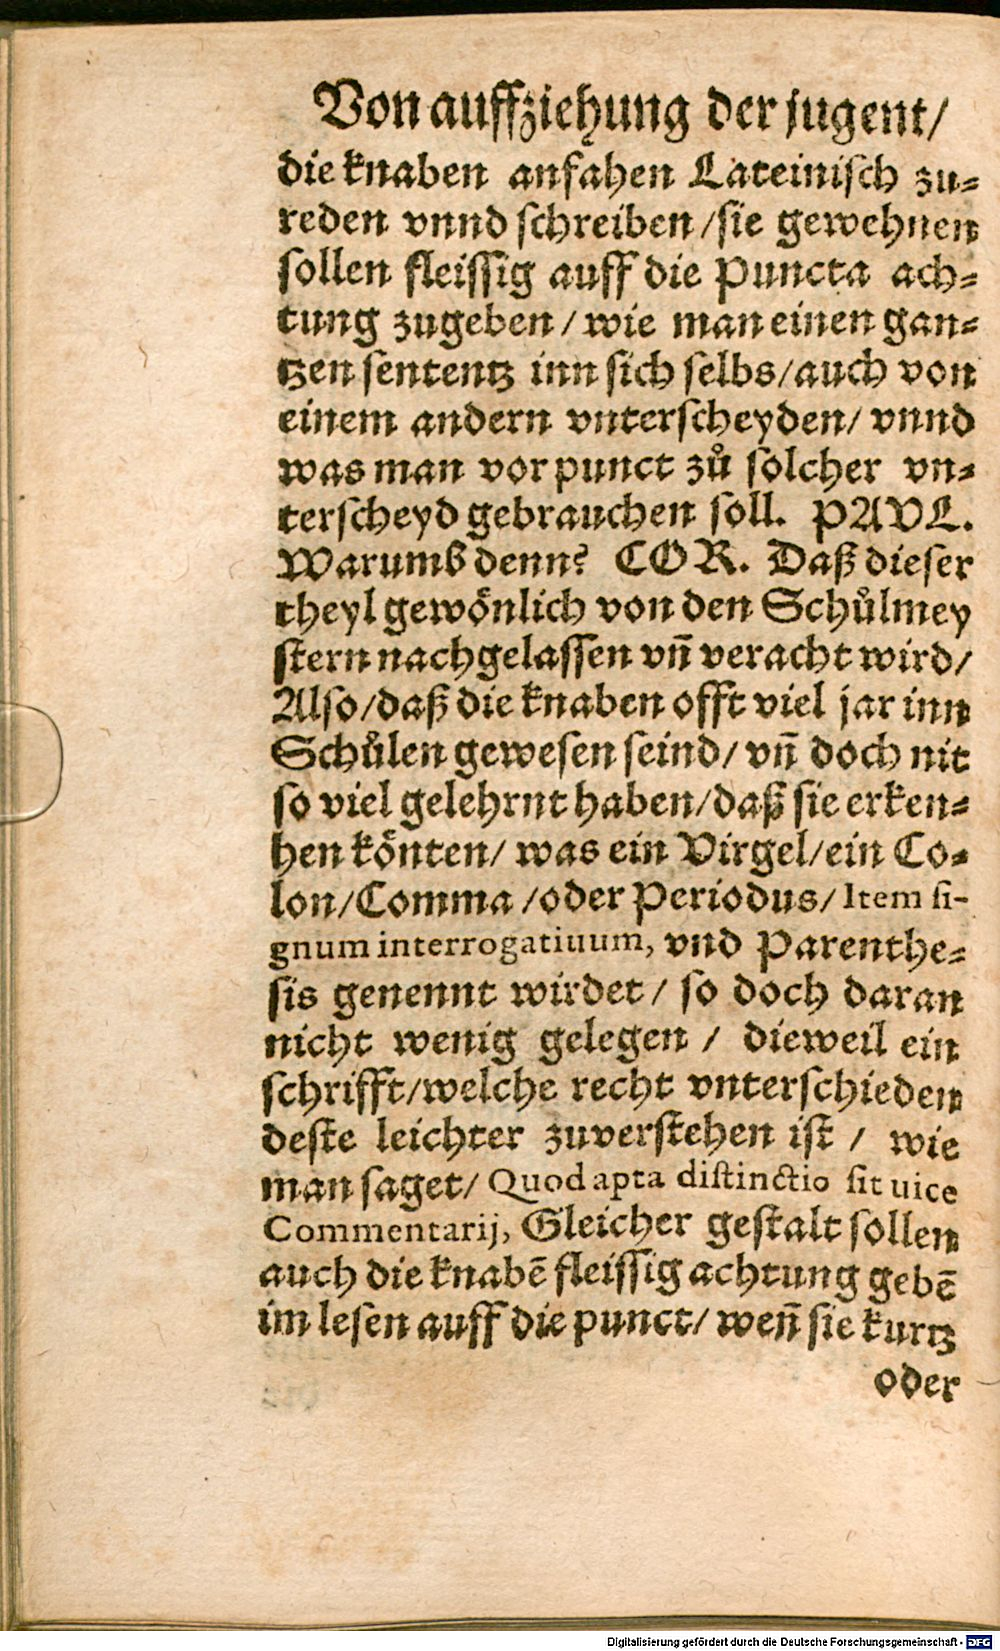 Von auffziehung der jugent/
die knaben anfahen Lateinisch zu⸗
reden vnnd schreiben/sie gewehnen
sollen fleissig auff die Puncta ach⸗
tung zugeben/ wie man einen gan⸗
tzen sententz inn sich selbs/auch von
einem andern vnterscheyden/ vnnd
was man vor punct zů solcher vn⸗
terscheyd gebrauchen soll. PAVL.
Warumb denn? COR. Daß dieser
theyl gewönlich von den Schůlmey
stern nachgelassen vn̄ veracht wird/
Also/daß die knaben offt viel jar inn
Schůlen gewesen seind/ vn̄ doch nit
so viel gelehrnt haben/daß sie erken⸗
hen könten/ was ein Virgel/ein Co⸗
lon/Comma/oder Periodus/ Item si-
gnum interrogatiuum, vnd Parenthe⸗
sis genennt wirdet/ so doch daran
nicht wenig gelegen / dieweil ein
schrifft/welche recht vnterschieden
deste leichter zuverstehen ist / wie
man saget/ Quod apta distinctio sit uice
Commentarij, Gleicher gestalt sollen
auch die knabē fleissig achtung gebē
im lesen auff die punct/ wen̄ sie kurtz
oder
Digitalisierung gefördert durch die Deutsche Forschungsgemeinschaft - DFG